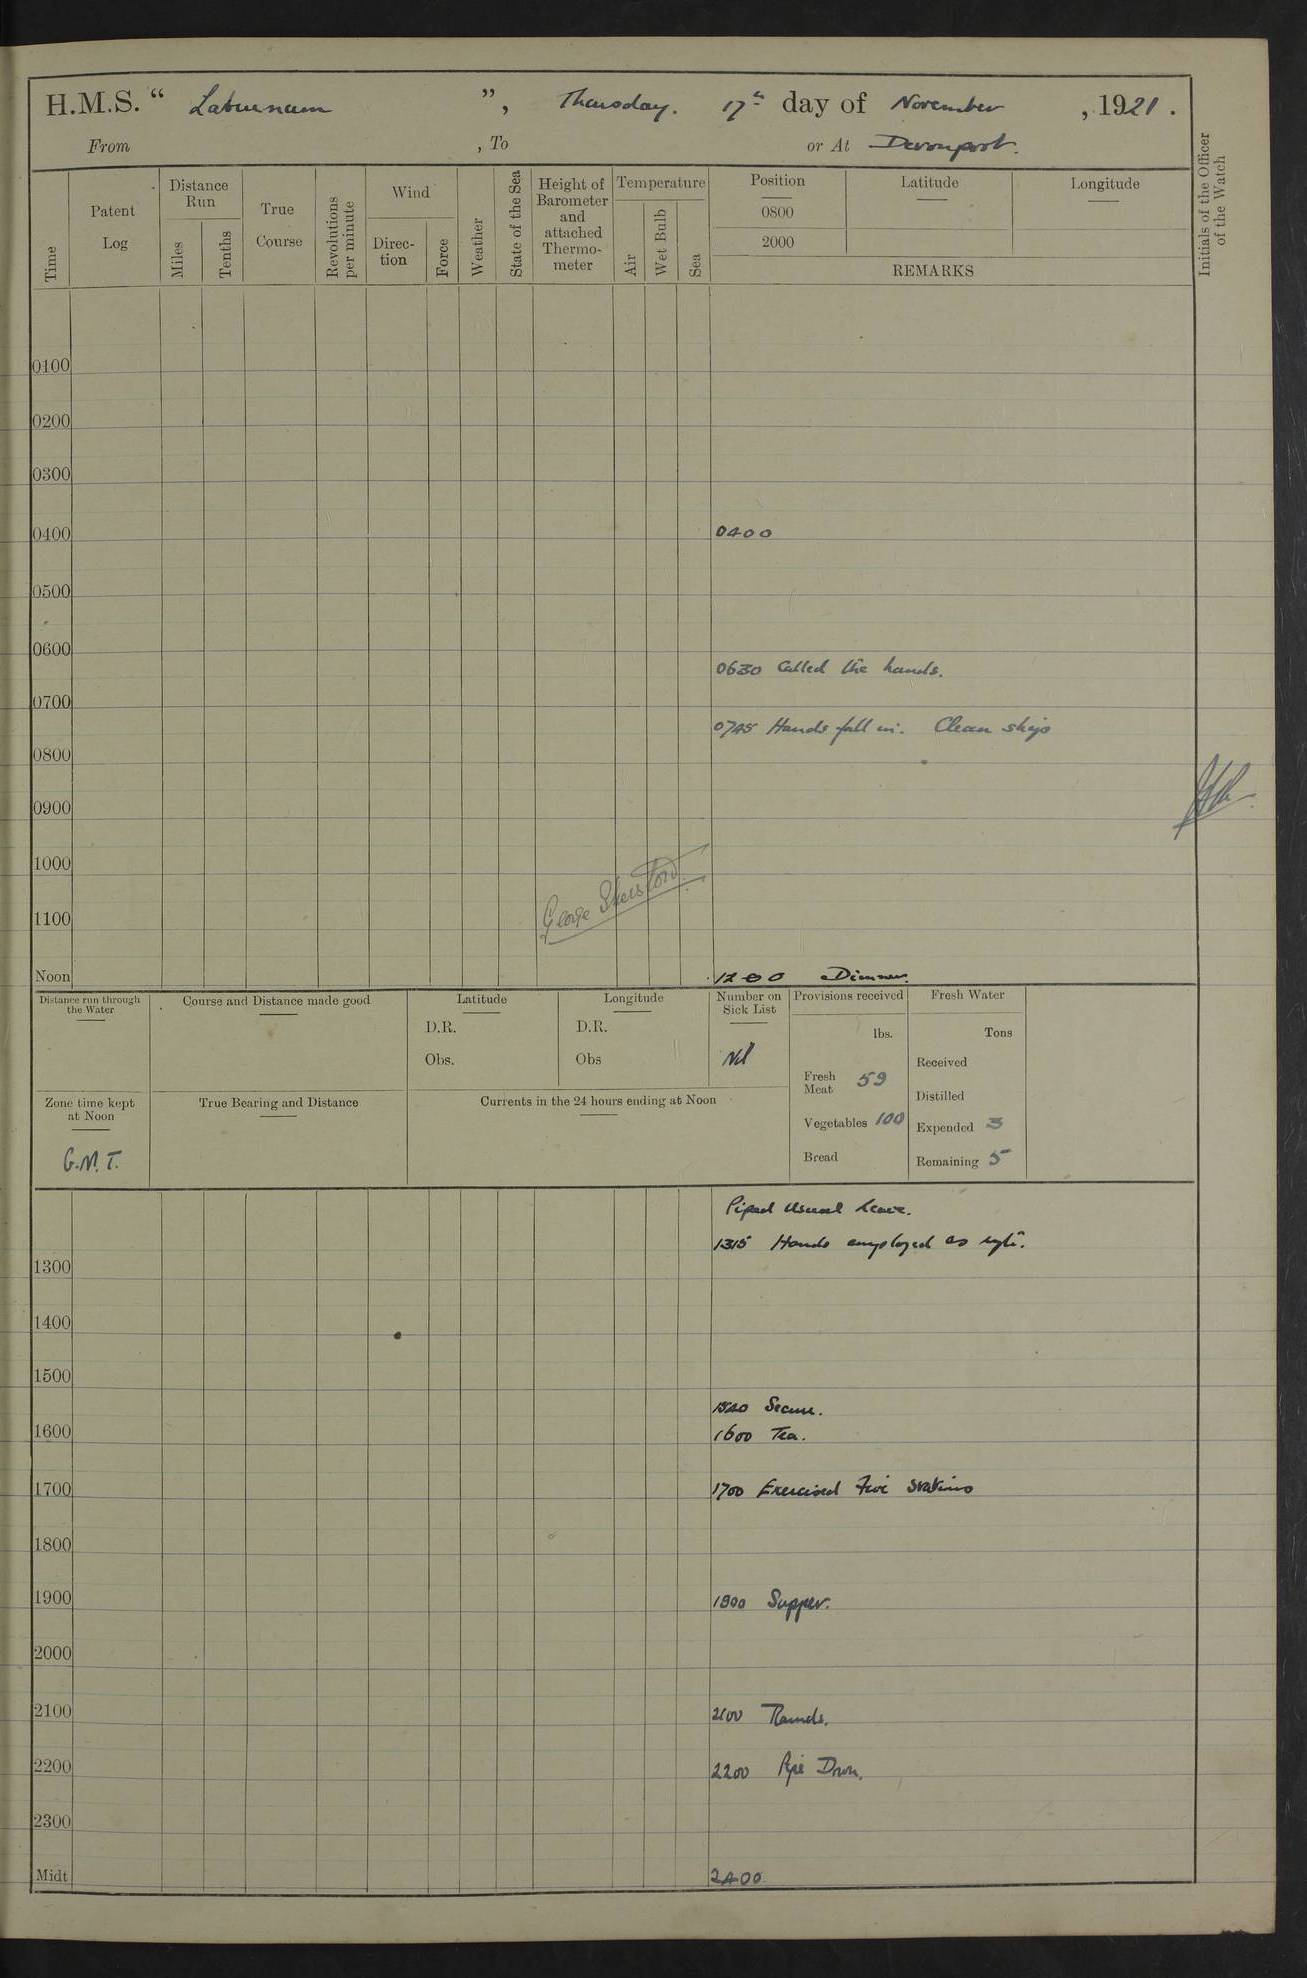 H.M.S. “ Laburnum ”, Thursday. 17th day of November, 1921.
From , To or At Devonport.
Time
Patent Log
Distance Run
Miles
Tenths
True Course
Revolutions per minute
Wind
Direc-tion
Force
Weather
State of the Sea
Height of Barometer and attached Thermo-meter
Temperature
Air
Wet Bulb
Sea
Position
Latitude
Longitude
0800
2000
REMARKS
Initials of the Officer of the Watch
0100
0200
0300
0400 0400
0500
0600
0630 Called the hands.
0700
0745 Hands fall in. Clean ship
0800
0900
1000
George
1100
Noon 1200 Dinner.
Distance run through the Water
Course and Distance made good
Latitude
D.R.
Obs.
Longitude
D.R.
Obs
Number on Sick List
Nil
Provisions received
lbs.
Fresh Meat 59
Vegetables 100
Bread
Fresh Water
Tons
Received
Distilled
Expended 3
Remaining 5
Zone time kept at Noon
G.M.T.
True Bearing and Distance
Currents in the 24 hours ending at Noon
Piped usual leave.
1315 Hands employed as reqte.
1300
1400
1500
1540 Secure.
1600 1600 Tea.
1700 1700 Exercised Fire Stations
1800
1900 1900 Supper.
2000
2100 2100 Rounds.
2200 2200 Pipe Down.
2300
Midt 2400